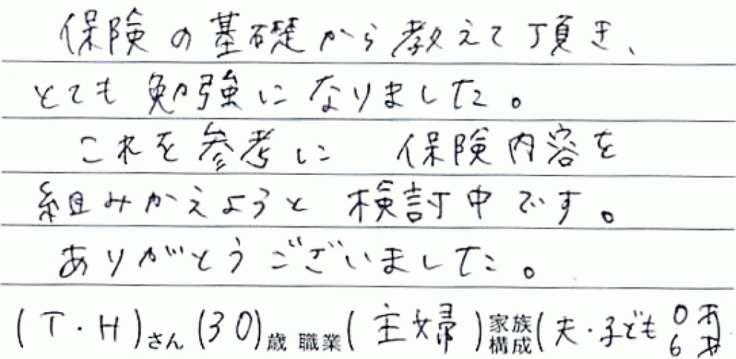 保険の基礎から教えて頂き、
とても勉強になりました。
これを参考に 保険内容を
組みかえようと 検討中です。
ありがとうございました。
(T・H)さん (30)歳 職業(主婦)家族構成(夫・子ども 0才 6才